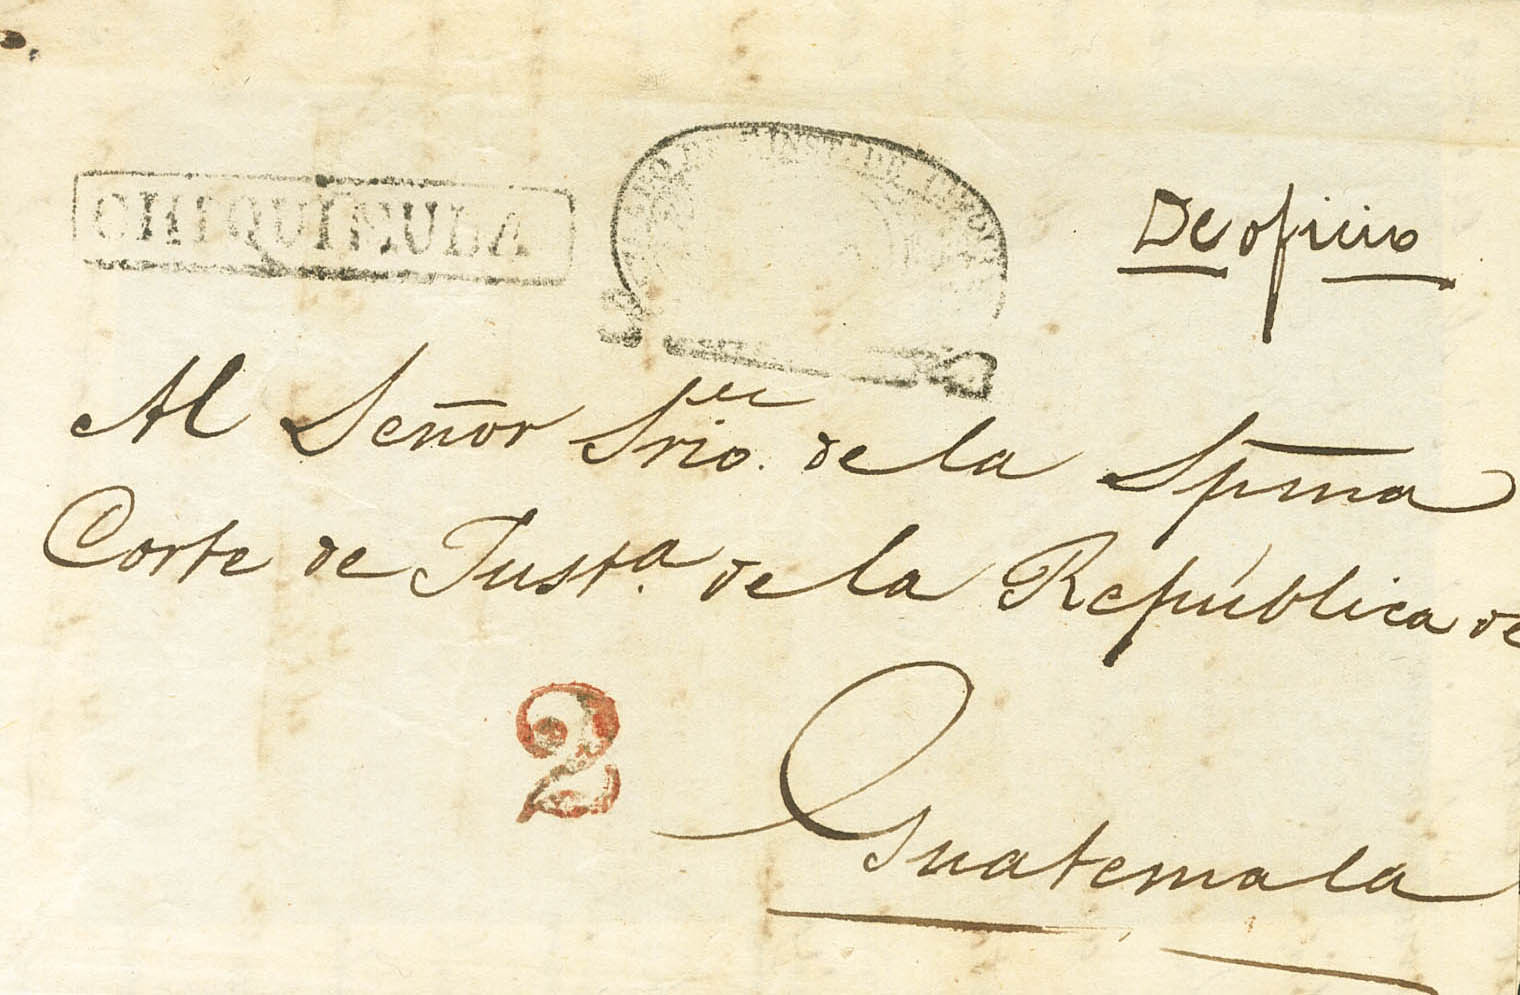 CHIQUIMULA
INST. DE
De oficio
Al Señor Srio. de la Spma
Corte de Justa. de la República de
2
Guatemala